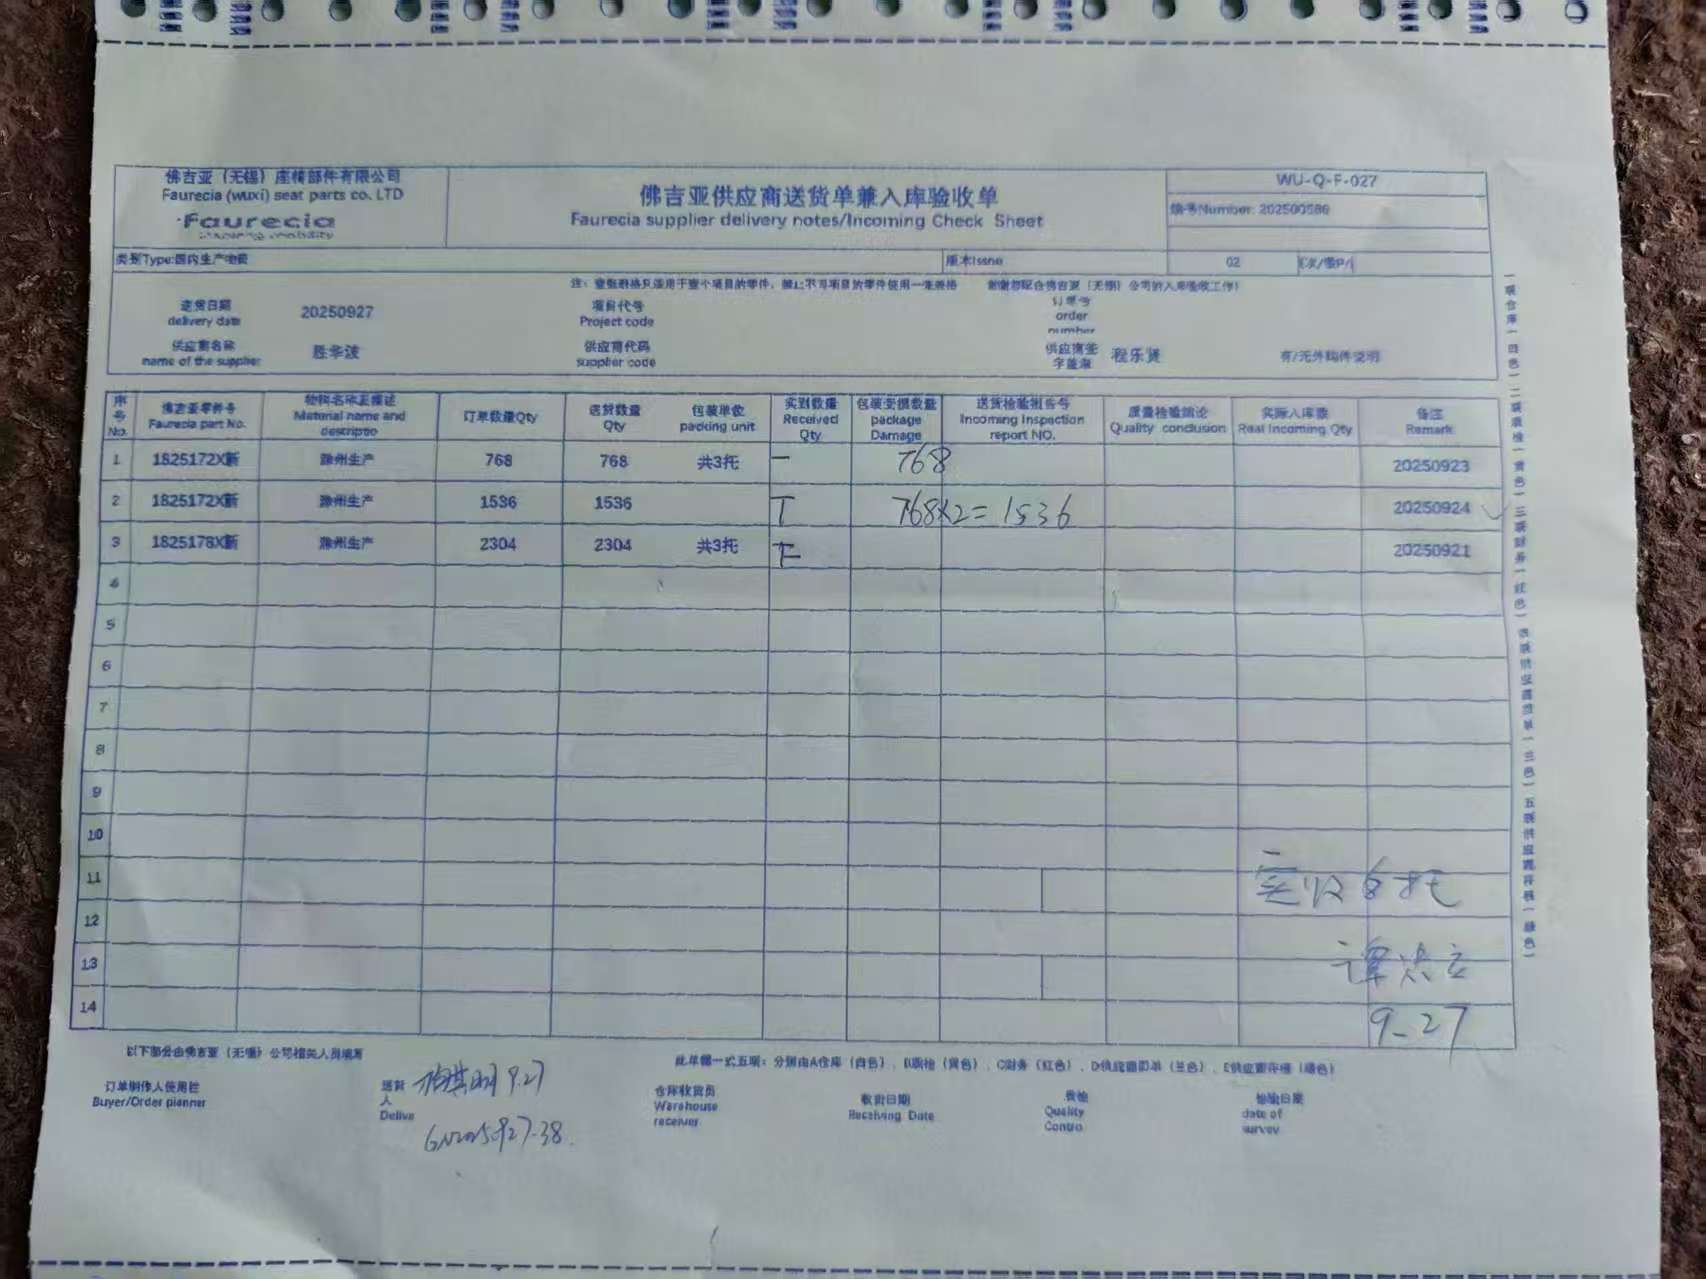 佛吉亚（无锡）座椅部件有限公司
Faurecia (wuxi) seat parts co. LTD
Faurecia
佛吉亚供应商送货单兼入库验收单
Faurecia supplier delivery notes/Incoming Check Sheet
WU-Q-F-027
编号Number: 202500586
类别Type:国内生产物资
版本Issue
02
送货日期
delivery date
20250927
项目代号
Project code
订单号
order
number
供应商名称
name of the supplier
胜华波
供应商代码
supplier code
供应商签
字盖章
程乐贤
有/无外购件说明
序号
No.
佛吉亚零件号
Faurecia part No.
物料名称及描述
Material name and
descriptio
订单数量Qty
送货数量
Qty
包装单位
packing unit
实到数量
Received
Qty
包装受损数量
package
Damage
送货检验报告号
Incoming Inspection
report NO.
质量检验结论
Quality conclusion
实际入库数
Real Incoming Qty
备注
Remark
1 1825172X新 滁州生产 768 768 共3托 一 768 20250923
2 1825172X新 滁州生产 1536 1536 768×2=1536 20250924
3 1825178X新 滁州生产 2304 2304 共3托 20250921
4
5
6
7
8
9
10
11
12
13
14
实收6托
9-27
以下部分由佛吉亚（无锡）公司相关人员填写
此单据一式五联：分别由A仓库（白色），B质检（黄色），C财务（红色），D供应商回单（兰色），E供应商存根（绿色）
订单制作人使用栏
Buyer/Order planner
送货
人
Delive
9.27
GN20250927-38
仓库收货员
Warehouse
receiver
收货日期
Receiving Date
质检
Quality
Contro
检验日期
date of
survey